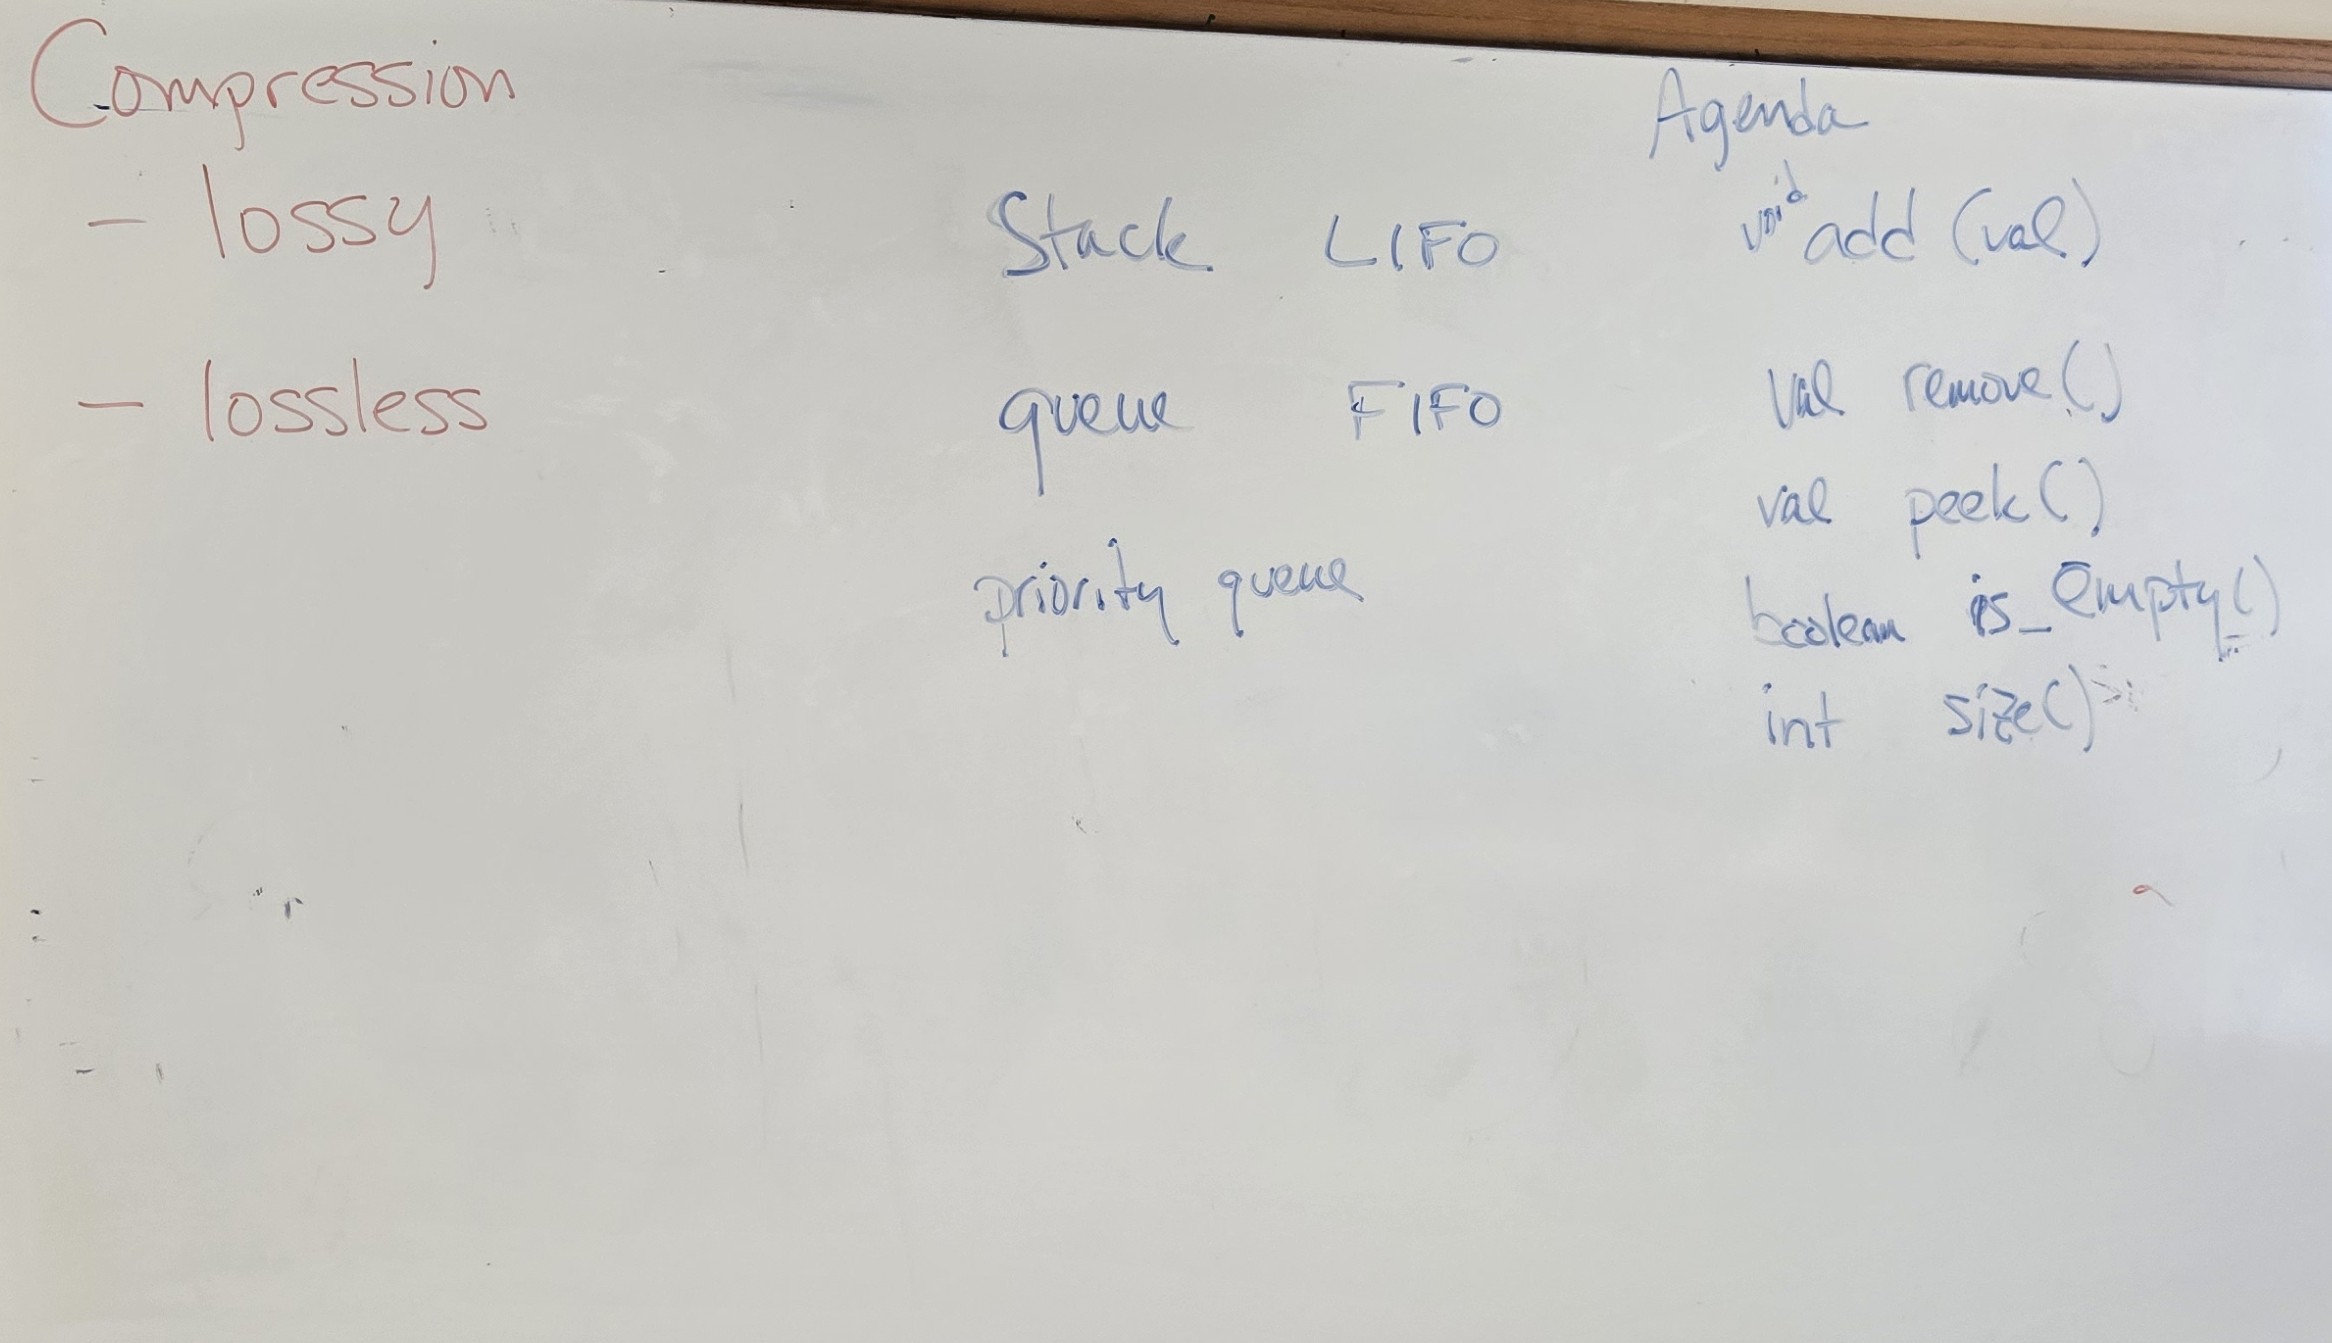 Compression
- lossy
- lossless
Stack LIFO
queue FIFO
priority queue
Agenda
void add (val)
val remove()
val peek()
boolean is_empty()
int size()